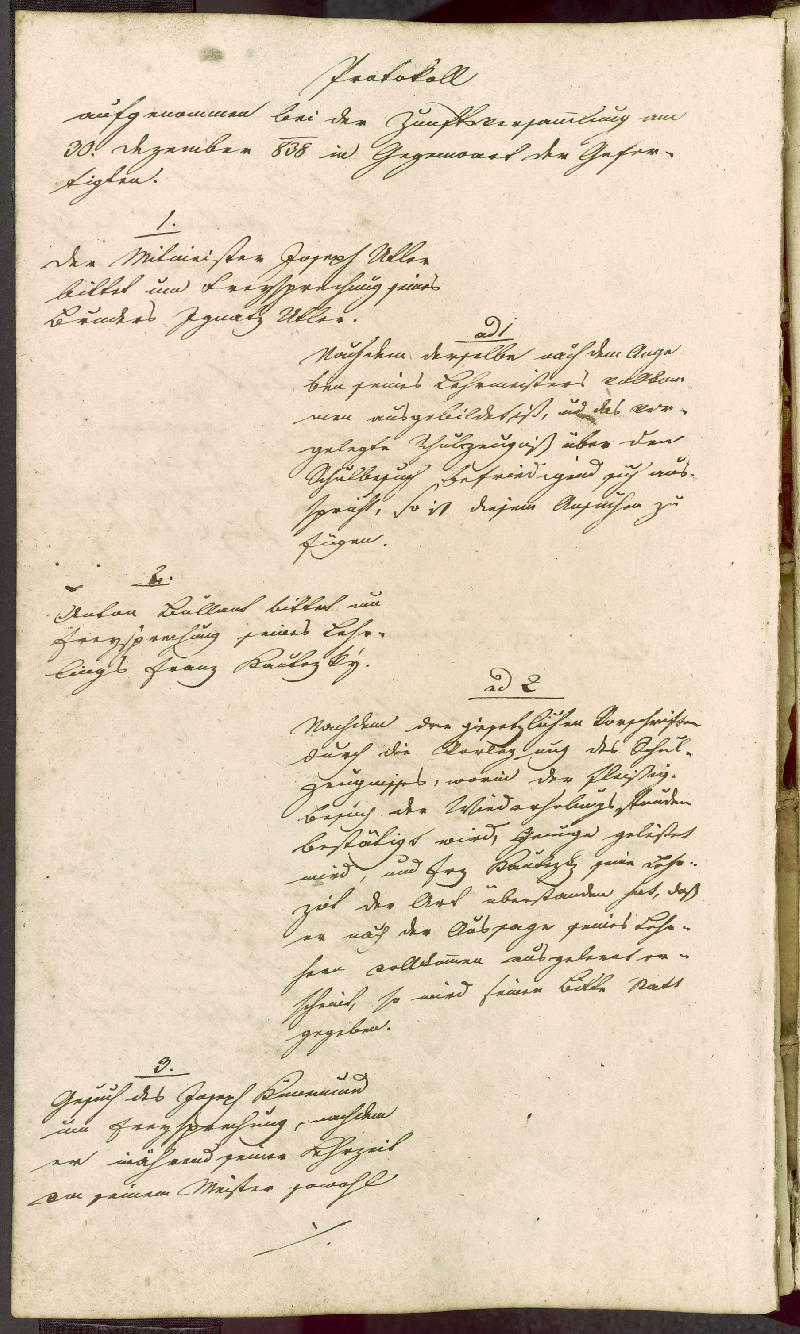 Protokoll
aufgenommen bei der Zunftsversam̅lung am
30. Dezember 838 in Gegenwart der Gefer-
tigten.
1.
Der Mitmeister Joseph Utler
bittet um Freysprechung seines
Bruders Ignatz Utler.
ad 1
Nachdem derselbe nach dem Ange
ben seines Lehrmeisters vollkom
men ausgebildet ist, und das vor-
gelegte Schulzeugniß über den
Schulbesuch befriedigend sich aus-
spricht, so ist diesem Ansuchen zu
fügen.
2.
Anton Bullant bittet um
Freysprechung seines Lehr-
lings Franz Kautezký.
ad 2
Nachdem der gesetzlichen Vorschriften
durch die Vorlegung des Schul-
zeugnisses, worin der fleißig.
Besuch der Wiederholungsstunden
bestätigt wird, Genüge geleistet
wird, und Frz Kautezky seine Lehr-
zeit der Art überstanden hat, daß
er nach der Aussage seines Lehr-
herrn vollkom̅en ausgelernt er-
scheint, so wird seiner Bitte statt
gegeben.
3.
Gesuch des Joseph
um Freysprechung, nachdem
er während seiner Lehrzeit
von seinem Meister sowohl
./.